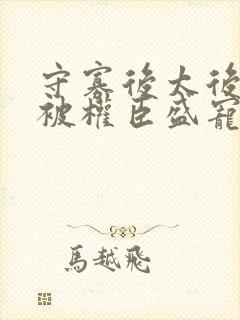 守寡後太後
被權臣盛寵
馬越飛